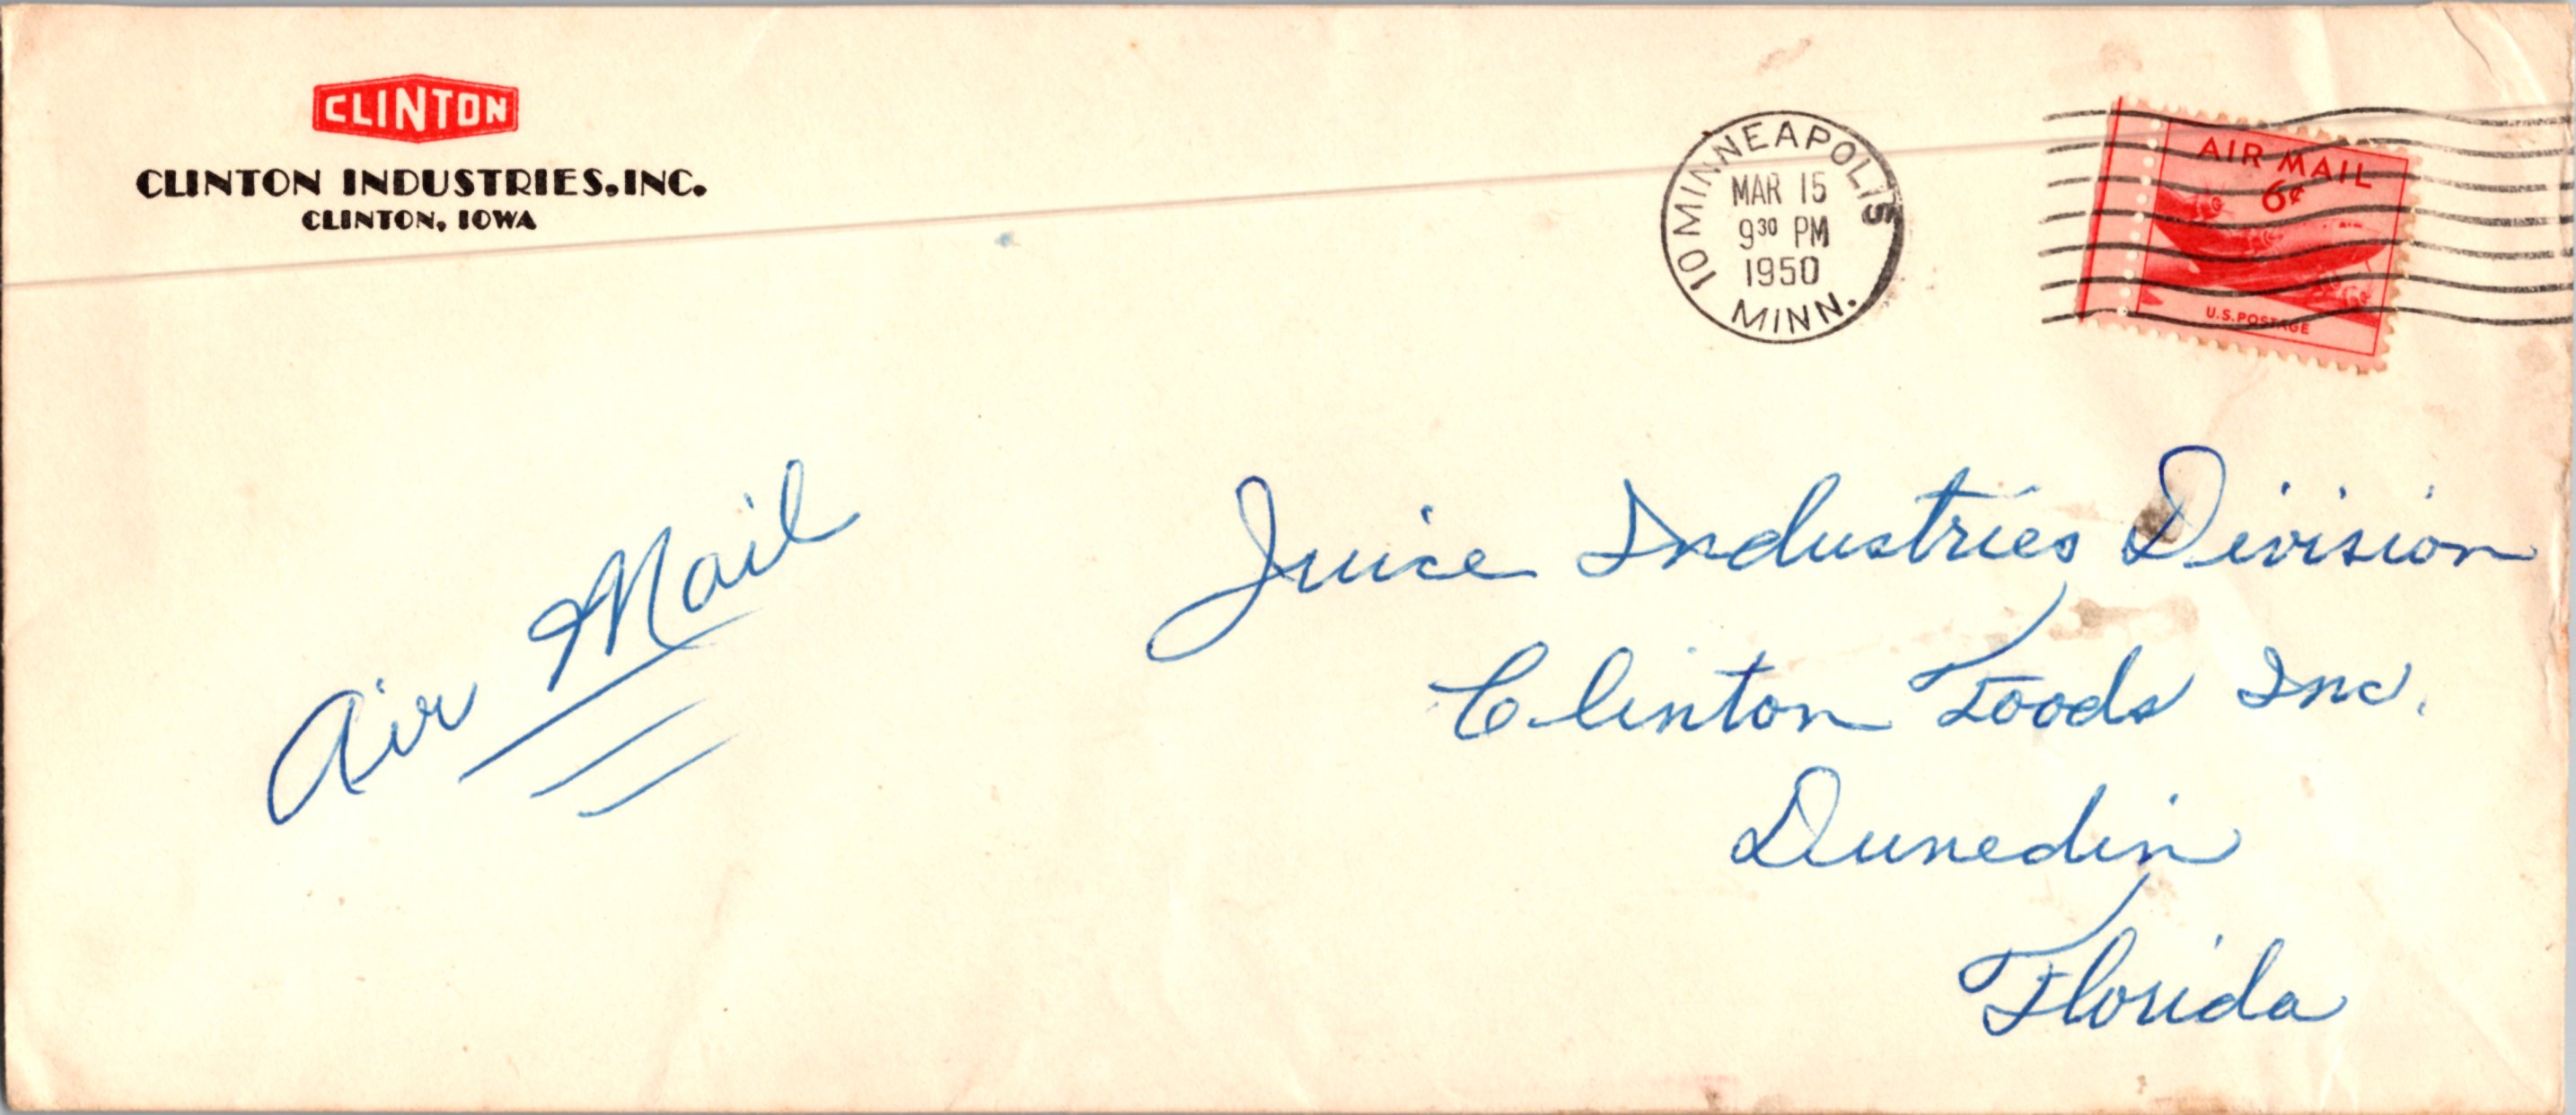 CLINTON
CLINTON INDUSTRIES, INC.
CLINTON, IOWA
10 MINNEAPOLIS
MAR 15
9 30 PM
1950
MINN.
AIR MAIL
6¢
U.S. POSTAGE
Air Mail
Juice Industries Division
Clinton Foods Inc.
Dunedin
Florida